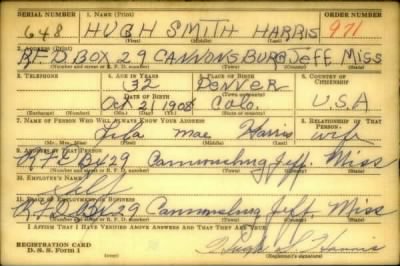 SERIAL NUMBER 1. NAME (Print) ORDER NUMBER
648 HUGH SMITH HARRIS 971
(First) (Middle) (Last)
2. ADDRESS (Print)
R.F.D. BOX 29 CANNONSBURG JEFF MISS
(Number and street or R. F. D. number) (Town) (County) (State)
3. TELEPHONE 4. AGE IN YEARS 5. PLACE OF BIRTH 6. COUNTRY OF CITIZENSHIP
32 DENVER
DATE OF BIRTH (Town or county)
Oct 21 1908 Colo. U.S.A
(Exchange) (No.) (Mo.) (Day) (Yr.) (State or country)
7. NAME OF PERSON WHO WILL ALWAYS KNOW YOUR ADDRESS 8. RELATIONSHIP OF THAT PERSON
Mae Harris wife
(Mr., Mrs., Miss) (First) (Middle) (Last)
9. ADDRESS OF THAT PERSON
R.F.D Bx 29 Cannonsburg Jeff. Miss
(Number and street or R. F. D. number) (Town) (County) (State)
10. EMPLOYER'S NAME
Self
11. PLACE OF EMPLOYMENT OR BUSINESS
R.F.D Bx 29 Cannonsburg Jeff. Miss
(Number and street or R. F. D. number) (Town) (County) (State)
I AFFIRM THAT I HAVE VERIFIED ABOVE ANSWERS AND THAT THEY ARE TRUE.
REGISTRATION CARD
D. S. S. Form 1 Hugh S. Harris
(Registrant's signature)